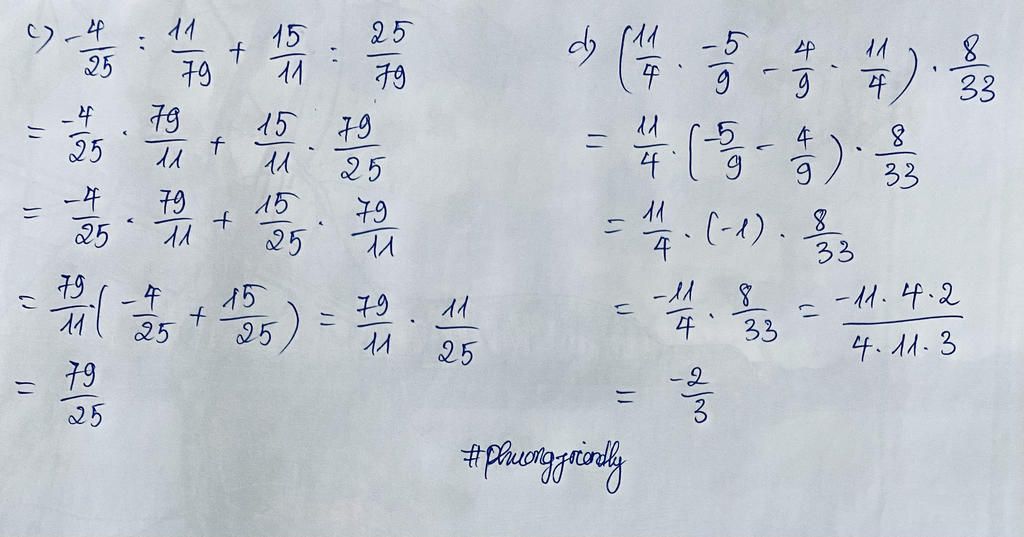 c) -4/25 : 11/79 + 15/11 : 25/79
= -4/25 . 79/11 + 15/11 . 79/25
= -4/25 . 79/11 + 15/25 . 79/11
= 79/11 . ( -4/25 + 15/25 ) = 79/11 . 11/25
= 79/25
d) ( 11/4 . -5/9 - 4/9 . 11/4 ) . 8/33
= 11/4 . ( -5/9 - 4/9 ) . 8/33
= 11/4 . (-1) . 8/33
= -11/4 . 8/33 = -11 . 4 . 2 / 4 . 11 . 3
= -2/3
#phuongfriendly